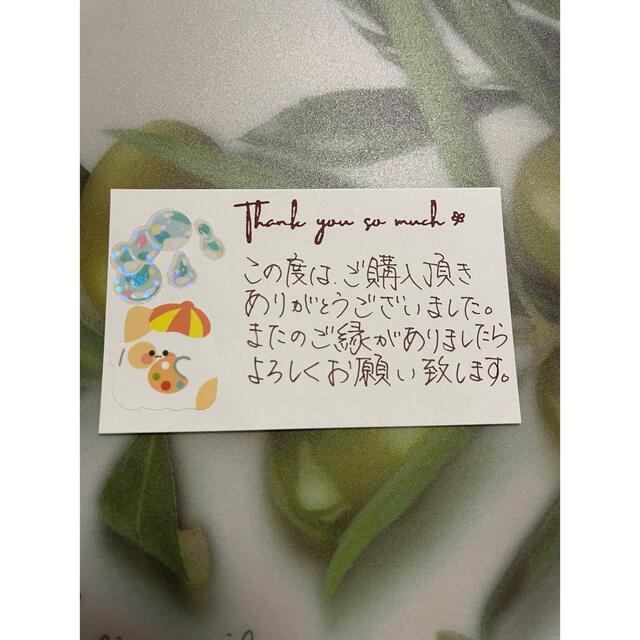 Thank you so much
この度は、ご購入頂き
ありがとうございました。
またのご縁がありましたら
よろしくお願い致します。